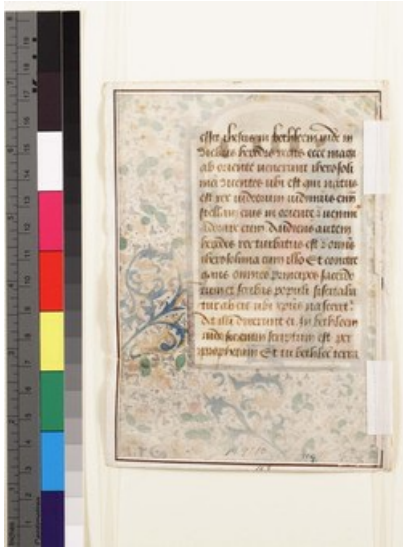 esset Ihesus in bethleem iude in
diebus herodis regis ecce magi
ab oriente venerunt iherosoli
mam dicentes ubi est qui natus
est rex iudeorum vidimus eni
stellam eius in oriente et venim
adorare eum Audiens autem
herodes rex turbatus est et omnis
iherosolima cum illo Et congre
gans omnes principes sacerdo
tum et scribas populi sciscitaba
tur ab eis ubi xpus nasceret
At illi dixerunt ei In bethleem
iude sic enim scriptum est per
prophetam Et tu bethlee terra